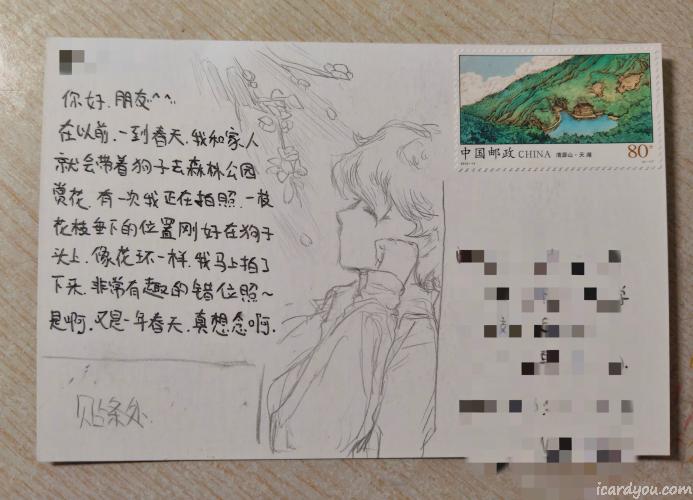 你好.朋友^^
在以前.一到春天.我和家人
就会带着狗子去森林公园
赏花.有一次我正在拍照.一枝
花枝垂下的位置刚好在狗子
头上.像花环一样.我马上拍了
下来.非常有趣的错位照~
是啊.又是一年春天.真想念啊.
贴条处
中国邮政 CHINA 清源山·天湖 80分
icardyou.com